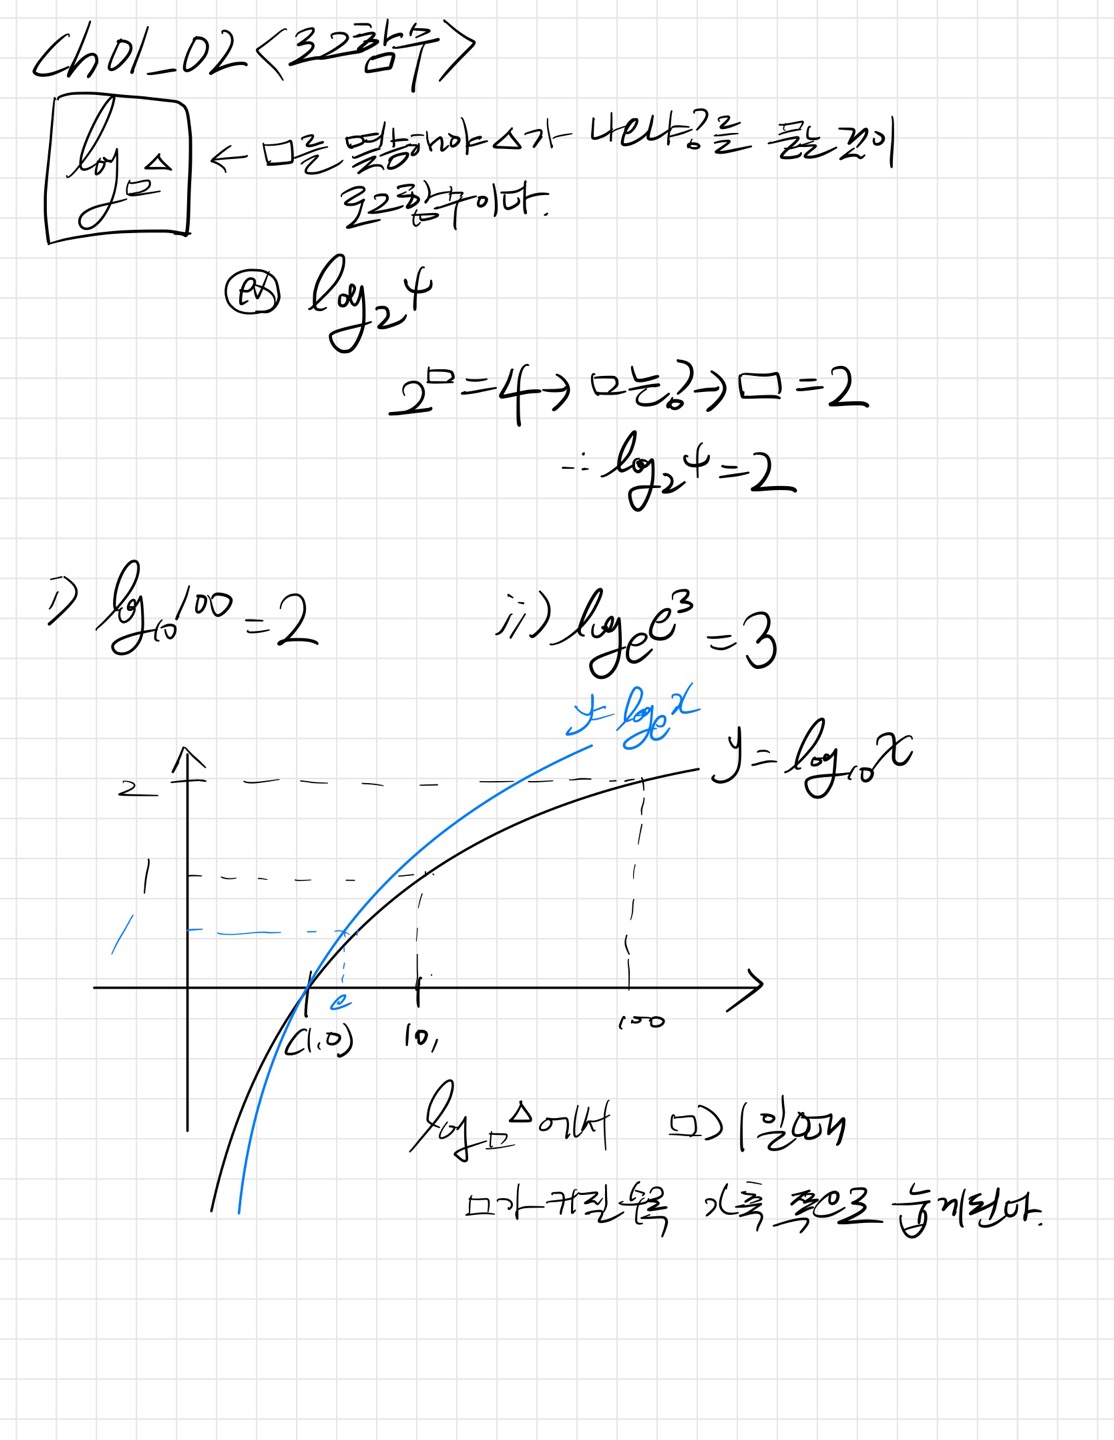 Ch01_02 <로그함수>
log□△ ← □를 몇승해야 △가 나오냐?를 묻는 것이
로그함수이다.
ex log₂4
2^□=4→ □는?→ □=2
∴ log₂4=2
i) log₁₀100=2
ii) logₑe³=3
y=logₑx
y=log₁₀x
2
1
1
e
(1,0)
10,
100
log□△에서 □>1일때
□가 커질수록 x축 쪽으로 눕게된다.